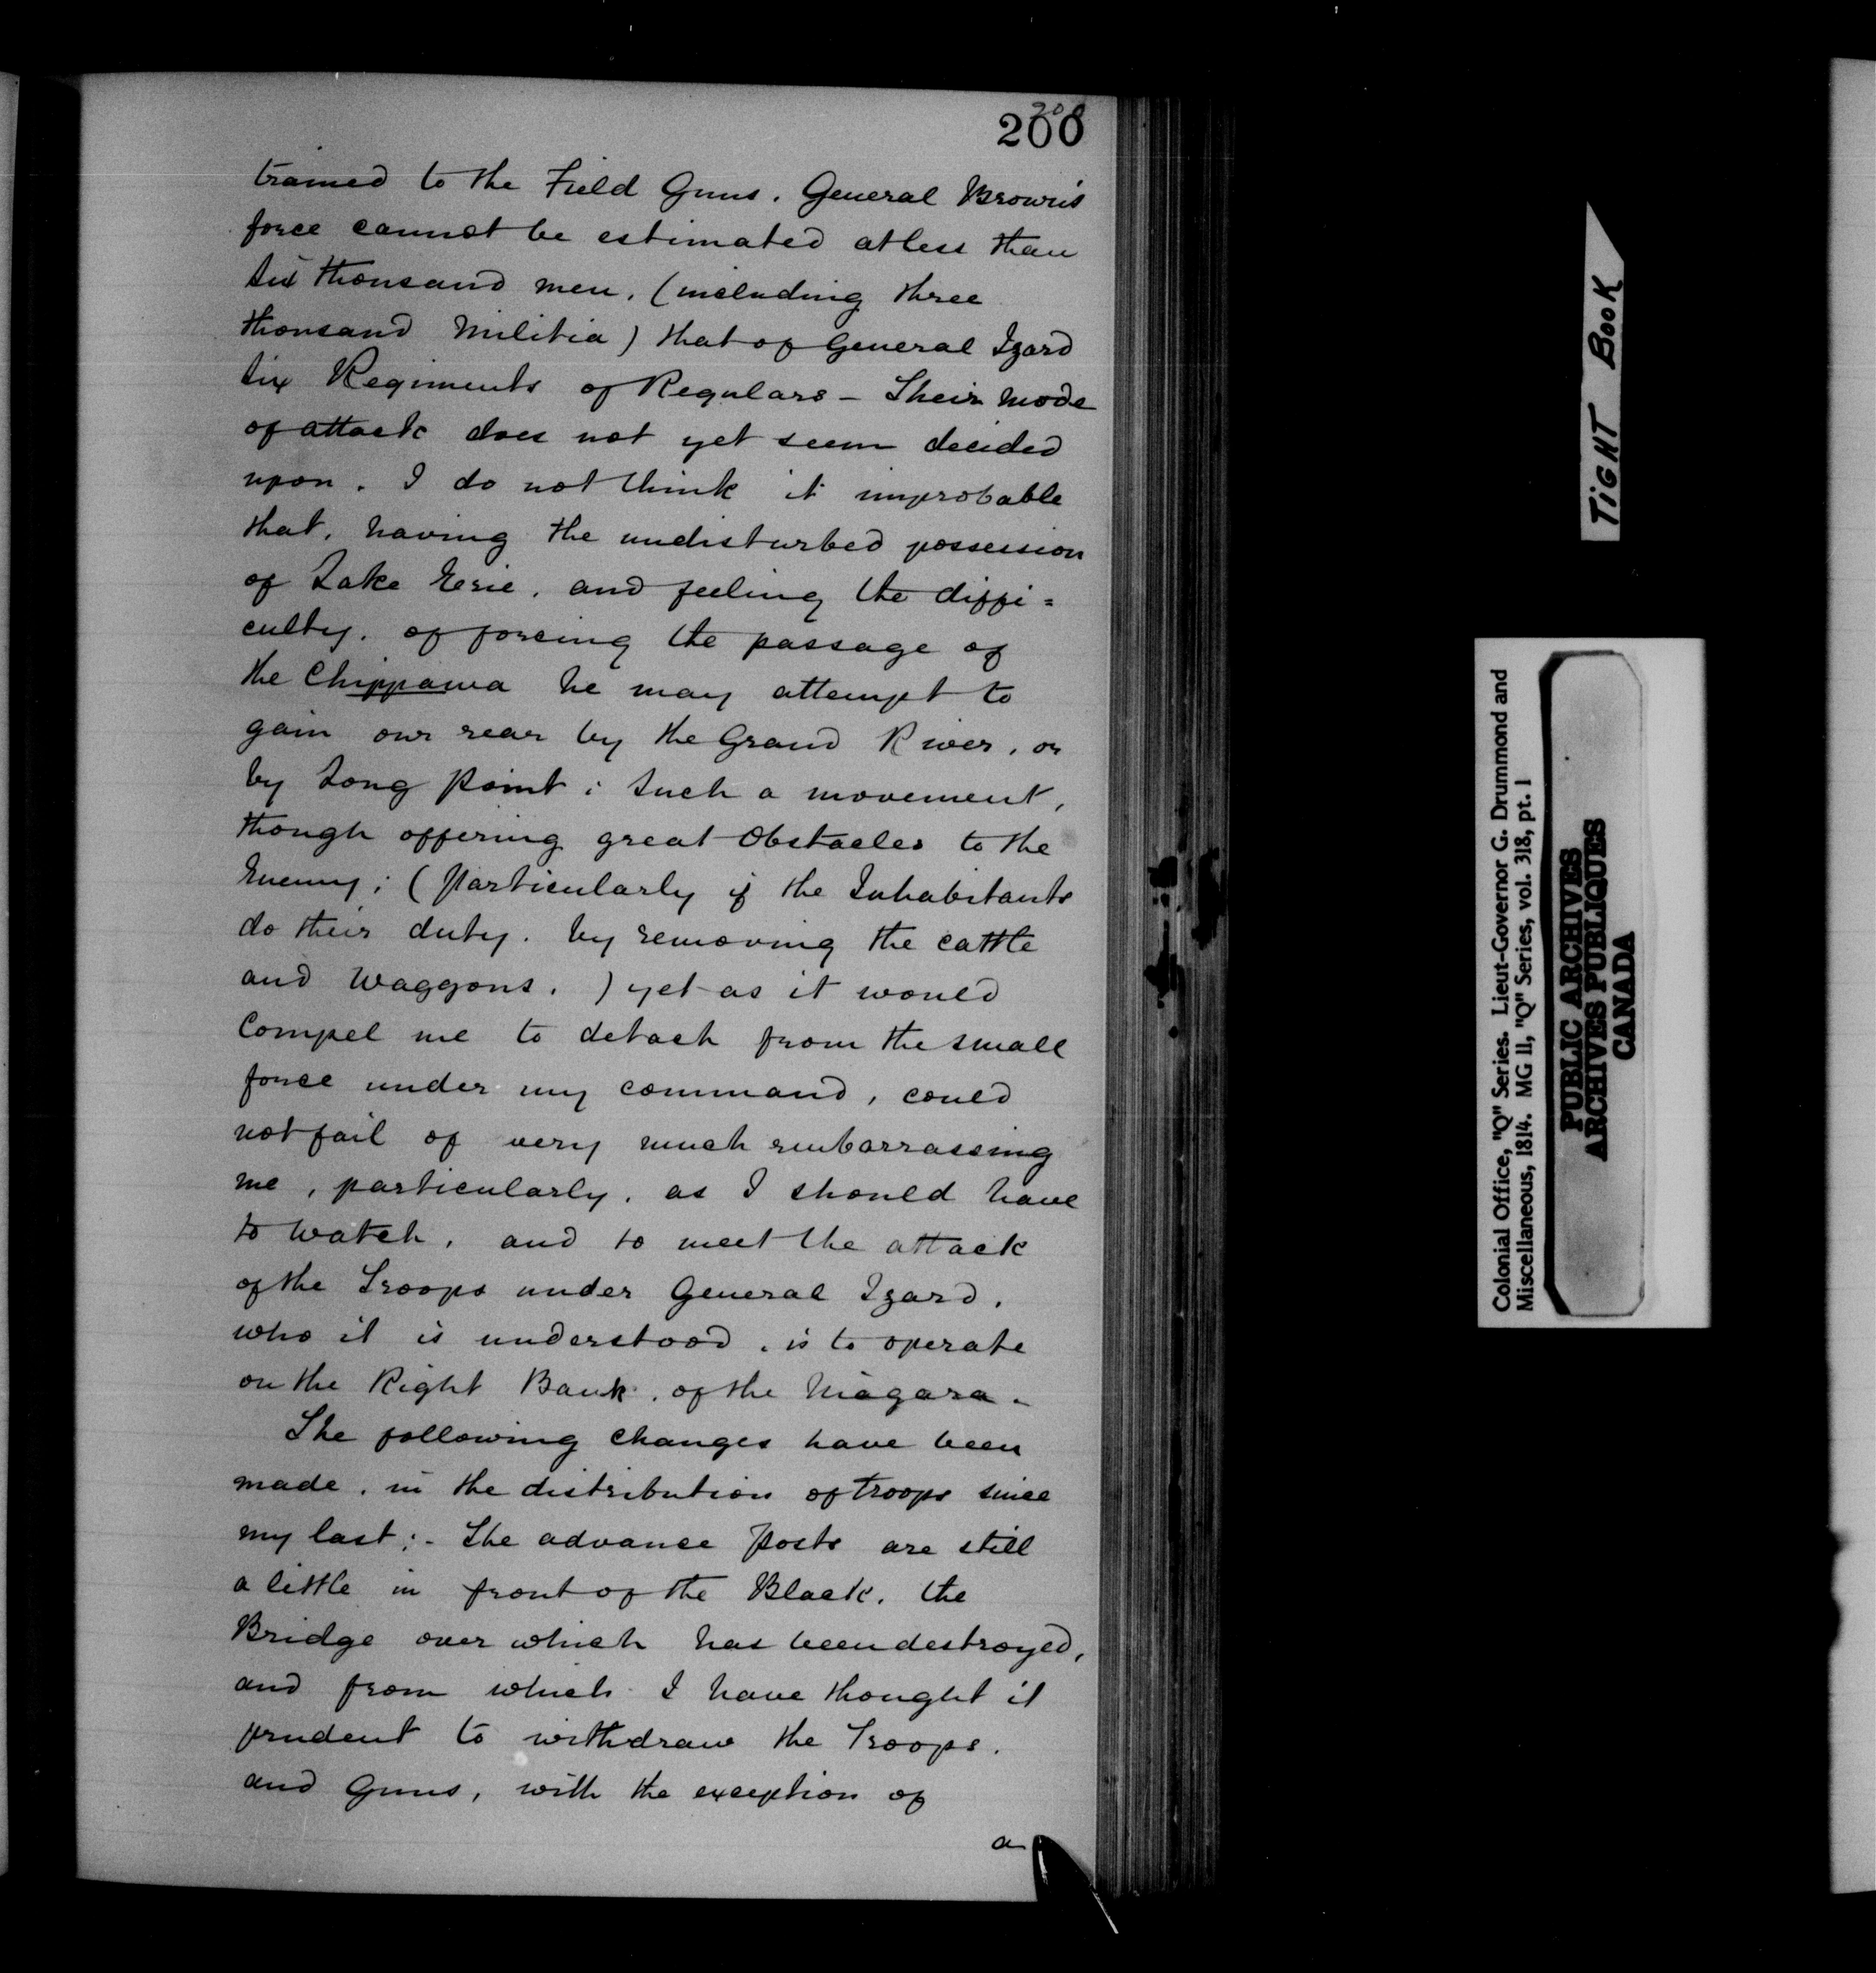 200
trained to the Field Guns. General Brown's
force cannot be estimated at less than
six thousand men, (including three
thousand Militia) that of General Izard
six Regiments of Regulars - Their mode
of attack does not yet seem decided
upon. I do not think it improbable
that, having the undisturbed possession
of Lake Erie, and feeling the diffi=
culty, of forcing the passage of
the Chippawa he may attempt to
gain our rear by the Grand River, or
by Long Point; Such a movement,
though offering great obstacles to the
Enemy; (particularly if the Inhabitants
do their duty, by removing the cattle
and Waggons,) yet as it would
Compel me to detach from the small
force under my command, could
not fail of very much embarrassing
me, particularly, as I should have
to watch, and to meet the attack
of the Troops under General Izard,
who it is understood, is to operate
on the Right Bank, of the Niagara.
The following changes have been
made, in the distribution of troops since
my last;- The advance Posts are still
a little in front of the Black, the
Bridge over which has been destroyed,
and from which I have thought it
prudent to withdraw the Troops,
and Guns, with the exception of
a
TIGHT BOOK
Colonial Office, "Q" Series. Lieut-Governor G. Drummond and
Miscellaneous, 1814. MG 11, "Q" Series, vol. 318, pt. 1
PUBLIC ARCHIVES
ARCHIVES PUBLIQUES
CANADA